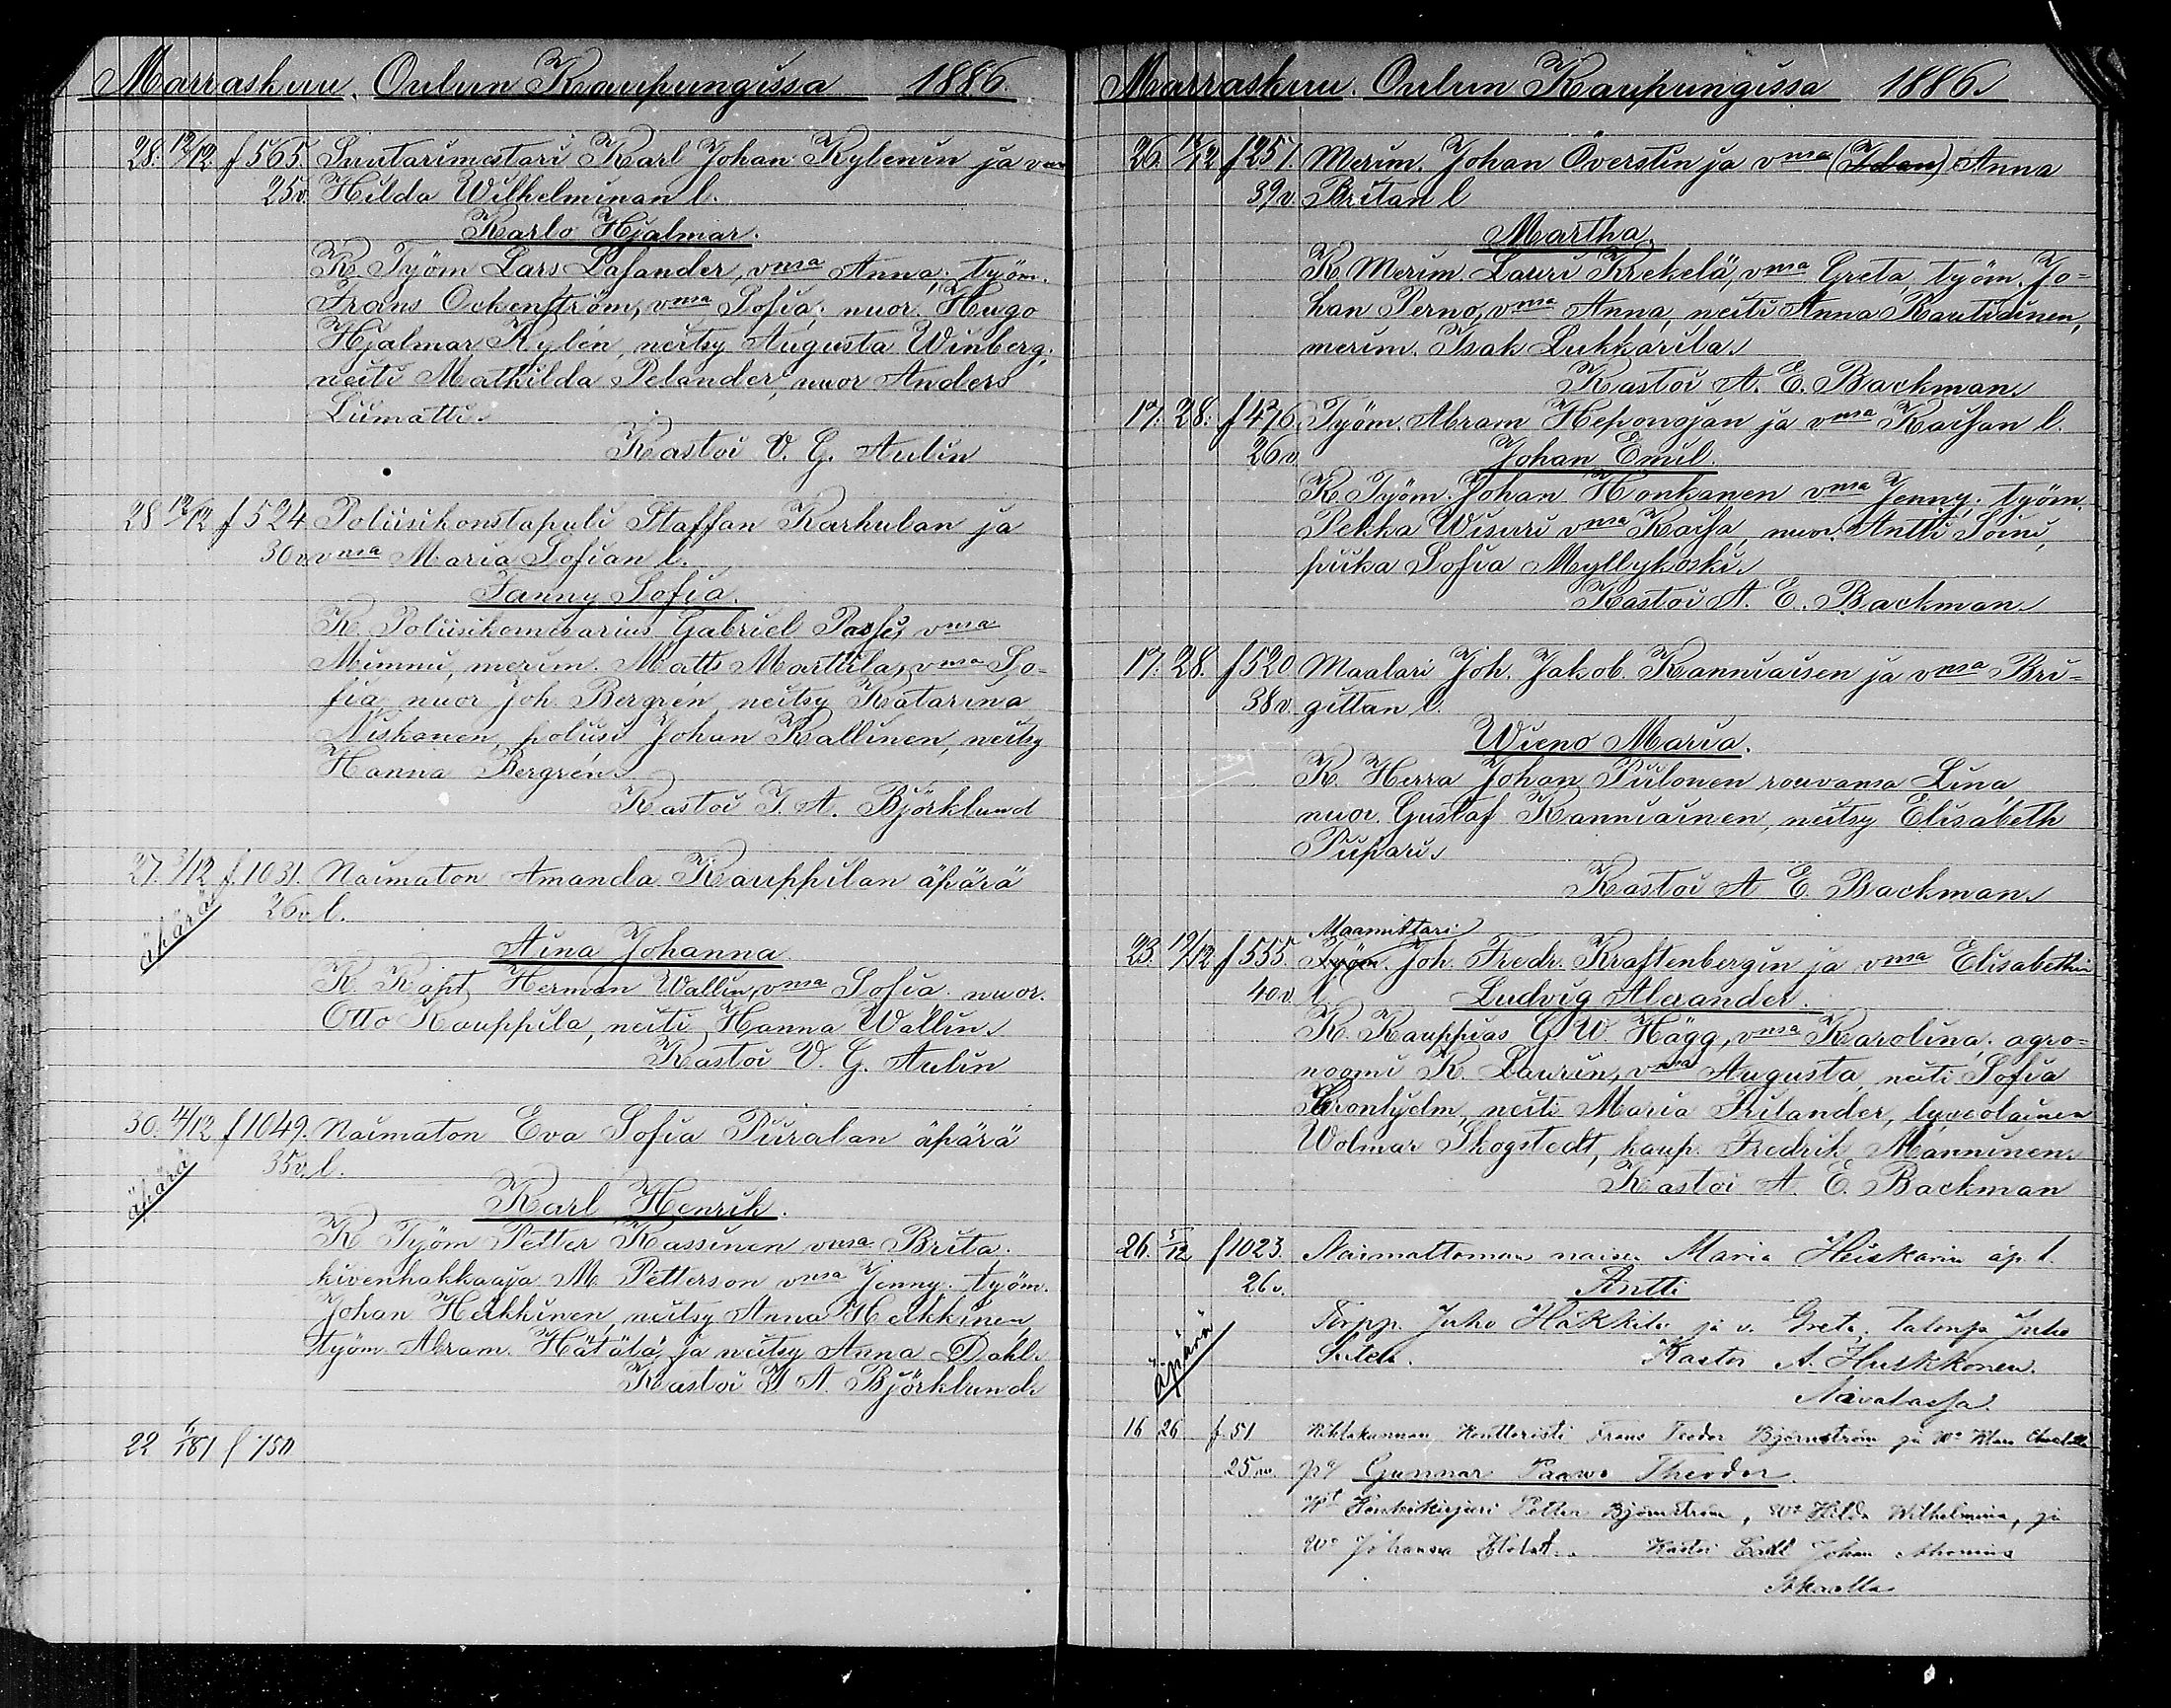 Marraskuu. Oulun Kaupungissa 1886.
28. 12/12. f 565. Suutarimestari Karl Johan Kylenin ja vmsa
25v. Hilda Wilhelminan l.
Karlo Hjalmar.
K. Työm Lars Lasander, vmsa Anna; työm.
Frans Ockenström, vmsa Sofia; nuor. Hugo
Hjalmar Kylén, neitsy Augusta Winberg;
neiti Mathilda Pelander, nuor Anders
Liimatti.
Kastoi V. G. Aulin
28 12/12 f 524 Poliisikonstapuli Staffan Karhulan ja
30v. vmsa Maria Sofian l.
Fanny Sofia.
K. Poliisikomisarius Gabriel Passi, vmsa
Mimmi, merim. Matts Marttila, vmsa So-
fia, nuor Joh. Bergrén, neitsy Katarina
Niskanen, poliisi Johan Kallinen, neitsy
Hanna Bergrén.
Kastoi J. A. Björklund
27. 3/12 f. 1031. Naimaton Amanda Kauppilan äpärä
26v. l.
äpärä
Aina Johanna
K. Kapt. Herman Wallin, vmsa Sofia. nuor.
Otto Kauppila, neiti Hanna Wallin.
Kastoi V. G. Aulin
30. 4/12 f 1049. Naimaton Eva Sofia Piiralan äpärä
35v. l.
äpärä
Karl Henrik.
K Työm Petter Kassinen vmsa Brita.
kivenhakkaaja M. Petterson vmsa Jenny. työm.
Johan Heikkinen, neitsy Anna Heikkinen
työm Abram. Hätälä, ja neitsy Anna Dahl.
Kastoi J. A. Björklund.
22 1/187 f 750
Marraskuu. Oulun Kaupungissa 1886.
26. 12/12 f 251. Merim. Johan Överstin ja vmsa (Idan) Anna
39v. Britan l
Martha.
K. Merim. Lauri Krekelä, vmsa Greta, työm. Jo-
han Perno, vmsa Anna, neiti Anna Rautiainen,
merim. Isak Lukkarila.
Kastoi A. E. Backman.
17. 28. f 476. Työm. Abram Heponojan ja vmsa Kaisan l.
26v Johan Emil.
K. Työm. Johan Honkanen vmsa Jenny; työm.
Pekka Wisuri vmsa Kaisa, nuor. Antti Soini,
piika Sofia Myllykoski.
Kastoi A. E. Backman.
17. 28. f 520 Maalari Joh. Jakob. Kanniaisen ja vmsa Bri-
38v. gittan l.
Wieno Maria.
K. Herra Johan Piilonen rouvansa Lina
nuor. Gustaf Kanniainen, neitsy Elisabeth
Piipari.
Kastoi A E. Backman.
Maamittari
23. 12/12 f 555. Työm. Joh. Fredr. Kraftenbergin ja vmsa Elisabethin
40v l Ludvig Alexander.
K. Kauppias G W. Hägg, vmsa Karolina; agro-
noomi K. Laurin, vmsa Augusta, neiti Sofia
Kronhjelm, neiti Maria Frilander, lyseolainen
Wolmar Skogstedt, kaup. Fredrik Manninen.
Kastoi A. E. Backman
26. 5/12 f 1023. Naimattoman naisen Maria Heiskarin äp. l.
26v. Antti
äpärä
Torpp. Juho Häkkilä ja v. Greta. talonp. Juho
Kastoi A. Huskkonen.
16 26 f. 51 Konttoristi Frans Teodor Björnström ja
25 Gunnar Paavo Theodor.
Henkikirjuri Petter Björnström, Hilda Wilhelmina, ja
Johanna Kastoi Johan